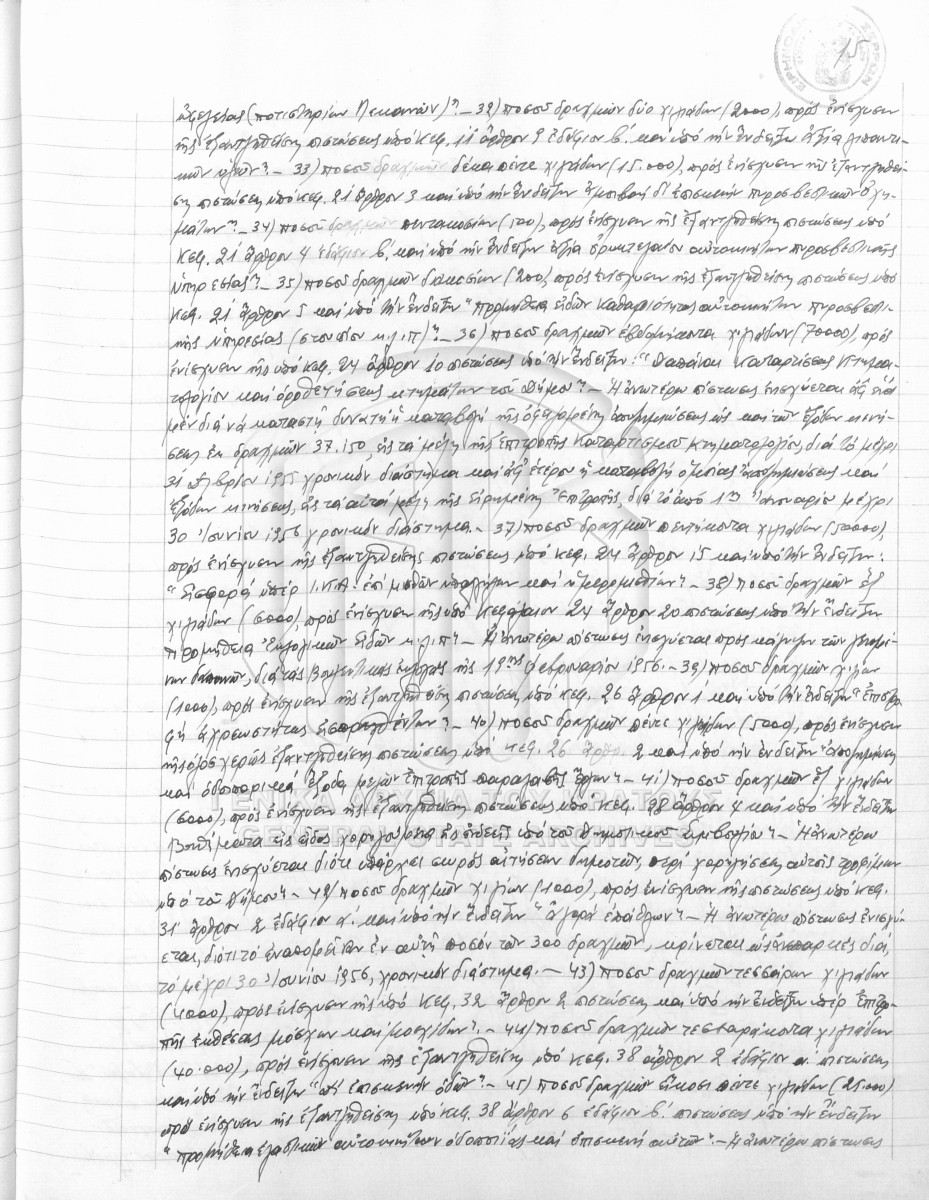 15
ὠφελείας (ποτιστηρίων Λεκανῶν)".- 32) ποσοῦ δραχμῶν δύο χιλιάδων (2000), πρὸς ἐνίσχυσιν
τῆς ἐξαντληθείσης πιστώσεως ὑπὸ Κεφ. 11 ἄρθρον 9 ἐδάφιον β. καὶ ὑπὸ τὴν ἔνδειξιν Ἀξία λιπαντι-
κῶν ὑλῶν".- 33) ποσοῦ δραχμῶν δέκα πέντε χιλιάδων (15.000), πρὸς ἐνίσχυσιν τῆς ἐξαντληθεί-
σης πιστώσεως ὑπὸ Κεφ. 21 ἄρθρον 3 καὶ ὑπὸ τὴν ἔνδειξιν ἀμοιβαὶ δι' ἐπισκευὴν πυροσβεστικῶν ὀχη-
μάτων".- 34) ποσοῦ δραχμῶν πεντακοσίων (500), πρὸς ἐνίσχυσιν τῆς ἐξαντληθείσης πιστώσεως ὑπὸ
Κεφ. 21 ἄρθρον 4 ἐδάφιον β. καὶ ὑπὸ τὴν ἔνδειξιν ἀξία ὀρυκτελαίου αὐτοκινήτων πυροσβεστικῆς
ὑπηρεσίας".- 35) ποσοῦ δραχμῶν διακοσίων (200), πρὸς ἐνίσχυσιν τῆς ἐξαντληθείσης πιστώσεως ὑπὸ
Κεφ. 21 ἄρθρον 5 καὶ ὑπὸ τὴν ἔνδειξιν "προμήθεια εἰδῶν καθαριότητος αὐτοκινήτων πυροσβεστι-
κῆς ὑπηρεσίας (στουπίου κ.λ.π.)".- 36) ποσοῦ δραχμῶν ἑβδομήκοντα χιλιάδων (70000), πρὸς
ἐνίσχυσιν τῆς ὑπὸ Κεφ. 24 ἄρθρον 10 πιστώσεως ὑπὸ τὴν ἔνδειξιν: "Δαπάναι καταρτίσεως κτημα-
τολογίου καὶ ὁροθετήσεως κτημάτων τοῦ Δήμου".- Ἡ ἀνωτέρω πίστωσις ἐνισχύεται ἀφ' ἑνὸς
μὲν διὰ νὰ καταστῇ δυνατὴ ἡ καταβολὴ τῆς ὀφειλομένης ἀποζημιώσεως ὡς καὶ τῶν ἐξόδων κινή-
σεως ἐκ δραχμῶν 37.150, εἰς τὰ μέλη τῆς ἐπιτροπῆς καταρτισμοῦ κτηματολογίου, διὰ τὸ μέχρι
31 Δ/βρίου 1955 χρονικὸν διάστημα καὶ ἀφ' ἑτέρου ἡ καταβολὴ ὁμοίας ἀποζημιώσεως καὶ
ἐξόδων κινήσεως, εἰς τὰ αὐτὰ μέλη τῆς εἰρημένης Ἐπιτροπῆς, διὰ τὸ ἀπὸ 1ης Ἰανουαρίου μέχρι
30 Ἰουνίου 1956 χρονικὸν διάστημα.- 37) ποσοῦ δραχμῶν πεντήκοντα χιλιάδων (50000),
πρὸς ἐνίσχυσιν τῆς ἐξαντληθείσης πιστώσεως ὑπὸ Κεφ. 24 ἄρθρον 15 καὶ ὑπὸ τὴν ἔνδειξιν:
"Εἰσφορὰ ὑπὲρ Ι.Κ.Α. ἐπὶ μισθῶν ὑπαλλήλων καὶ ἡμερομισθίων".- 38) ποσοῦ δραχμῶν ἓξ
χιλιάδων (6000), πρὸς ἐνίσχυσιν τῆς ὑπὸ Κεφάλαιον 24 ἄρθρον 20 πιστώσεως ὑπὸ τὴν ἔνδειξιν
προμήθεια Ἐκλογικῶν εἰδῶν κ.λ.π."- Ἡ ἀνωτέρω πίστωσις ἐνισχύεται πρὸς κάλυψιν τῶν γενομέ-
νων δαπανῶν, διὰ τὰς βουλευτικὰς ἐκλογὰς τῆς 19ης Φεβρουαρίου 1956.- 39) ποσοῦ δραχμῶν χιλίων
(1000), πρὸς ἐνίσχυσιν τῆς ἐξαντληθείσης πιστώσεως ὑπὸ Κεφ. 26 ἄρθρον 1 καὶ ὑπὸ τὴν ἔνδειξιν "ἐπιστρο-
φὴ ἀχρεωστήτως εἰσπραχθέντων".- 40) ποσοῦ δραχμῶν πέντε χιλιάδων (5000), πρὸς ἐνίσχυσιν
τῆς ὁλοσχερῶς ἐξαντληθείσης πιστώσεως ὑπὸ Κεφ. 26 ἄρθρο 2 καὶ ὑπὸ τὴν ἔνδειξιν "ἀποζημίωσις
καὶ ὁδοιπορικὰ ἔξοδα μελῶν ἐπιτροπῆς παραλαβῆς ἔργων".- 41) ποσοῦ δραχμῶν ἓξ χιλιάδων
(6000), πρὸς ἐνίσχυσιν τῆς ἐξαντληθείσης πιστώσεως ὑπὸ Κεφ. 28 ἄρθρον 4 καὶ ὑπὸ τὴν ἔνδειξιν
Βοηθήματα εἰς εἶδος χορηγούμενα εἰς ἐνδεεῖς ὑπὸ τοῦ Δημοτικοῦ Συμβουλίου".- Ἡ ἀνωτέρω
πίστωσις ἐνισχύεται διότι ὑπάρχει σωρὸς αἰτήσεων δημοτῶν, περὶ χορηγήσεως αὐτοῖς τροφίμων
ὑπὸ τοῦ Δήμου".- 42) ποσοῦ δραχμῶν χιλίων (1000), πρὸς ἐνίσχυσιν τῆς πιστώσεως ὑπὸ Κεφ.
31 ἄρθρον 2 ἐδάφιον α. καὶ ὑπὸ τὴν ἔνδειξιν "ἀγορὰ ἐπίπλων".- Ἡ ἀνωτέρω πίστωσις ἐνισχύ-
εται, διότι τὸ ἐναπομεῖναν ἐν αὐτῇ ποσὸν τῶν 300 δραχμῶν, κρίνεται ὡς ἀνεπαρκὲς διὰ
τὸ μέχρι 30 Ἰουνίου 1956, χρονικὸν διάστημα.- 43) ποσοῦ δραχμῶν τεσσάρων χιλιάδων
(4000), πρὸς ἐνίσχυσιν τῆς ὑπὸ Κεφ. 32 ἄρθρον 2 πιστώσεως καὶ ὑπὸ τὴν ἔνδειξιν ὑπὲρ Ἐπιτρο-
πῆς ἐκθέσεως μόσχων καὶ μοσχίδων".- 44) ποσοῦ δραχμῶν τεσσαράκοντα χιλιάδων
(40.000), πρὸς ἐνίσχυσιν τῆς ἐξαντληθείσης ὑπὸ Κεφ. 38 ἄρθρον 2 ἐδάφιον α. πιστώσεως
καὶ ὑπὸ τὴν ἔνδειξιν ἐπισκευὴν ὁδῶν".- 45) ποσοῦ δραχμῶν εἴκοσι πέντε χιλιάδων (25.000)
πρὸς ἐνίσχυσιν τῆς ἐξαντληθείσης ὑπὸ Κεφ. 38 ἄρθρον 6 ἐδάφιον β. πιστώσεως ὑπὸ τὴν ἔνδειξιν
"προμήθεια ἐλαστικῶν αὐτοκινήτων ὁδοποιΐας καὶ ἐπισκευὴ αὐτῶν".- Ἡ ἀνωτέρω πίστωσις
ΓΕΝΙΚΑ ΑΡΧΕΙΑ ΤΟΥ ΚΡΑΤΟΥΣ
GENERAL STATE ARCHIVES